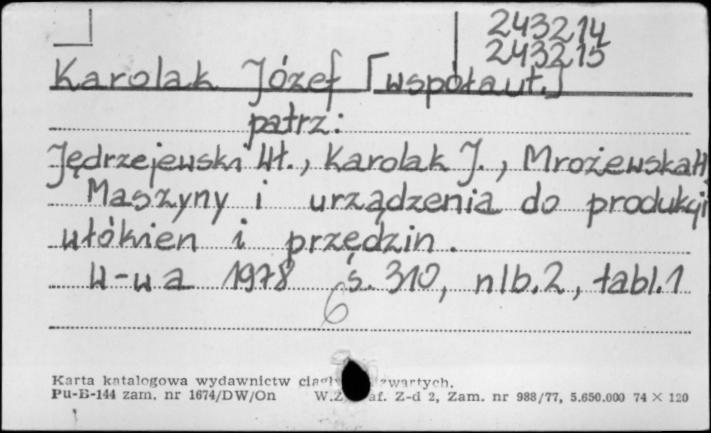 243214
243215
Karolak Józef [współaut.]
patrz:
Jędrzejewski Wł., Karolak J., Mrożewska H
Maszyny i urządzenia do produkcji
włókien i przędzin.
W-wa 1978 s. 310, nlb. 2, tabl. 1
6
Karta katalogowa wydawnictw zwartych.
Pu-B-144 zam. nr 1674/DW/On W.Z. af. Z-d 2, Zam. nr 988/77, 5.650.000 74 × 120